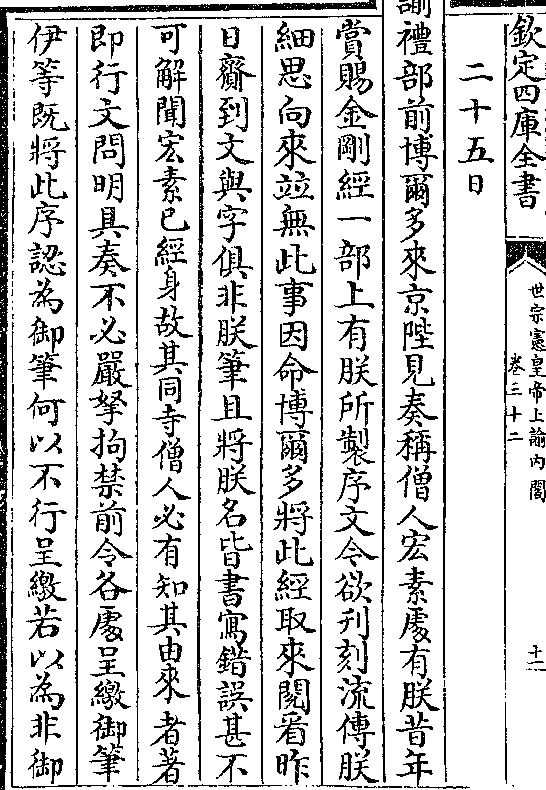 欽定四庫全書
世宗憲皇帝上諭內閣
卷三十二
十一
二十五日
諭禮部前博爾多來京陛見奏稱僧人宏素處有朕昔年
賞賜金剛經一部上有朕所製序文今欲刋刻流傳朕
細思向來竝無此事因命博爾多將此經取來閱看昨
日齎到文與字俱非朕筆且將朕名皆書寫錯誤甚不
可解聞宏素已經身故其同寺僧人必有知其由來者著
即行文問明具奏不必嚴拏拘禁前令各處呈繳御筆
伊等既將此序認為御筆何以不行呈繳若以為非御